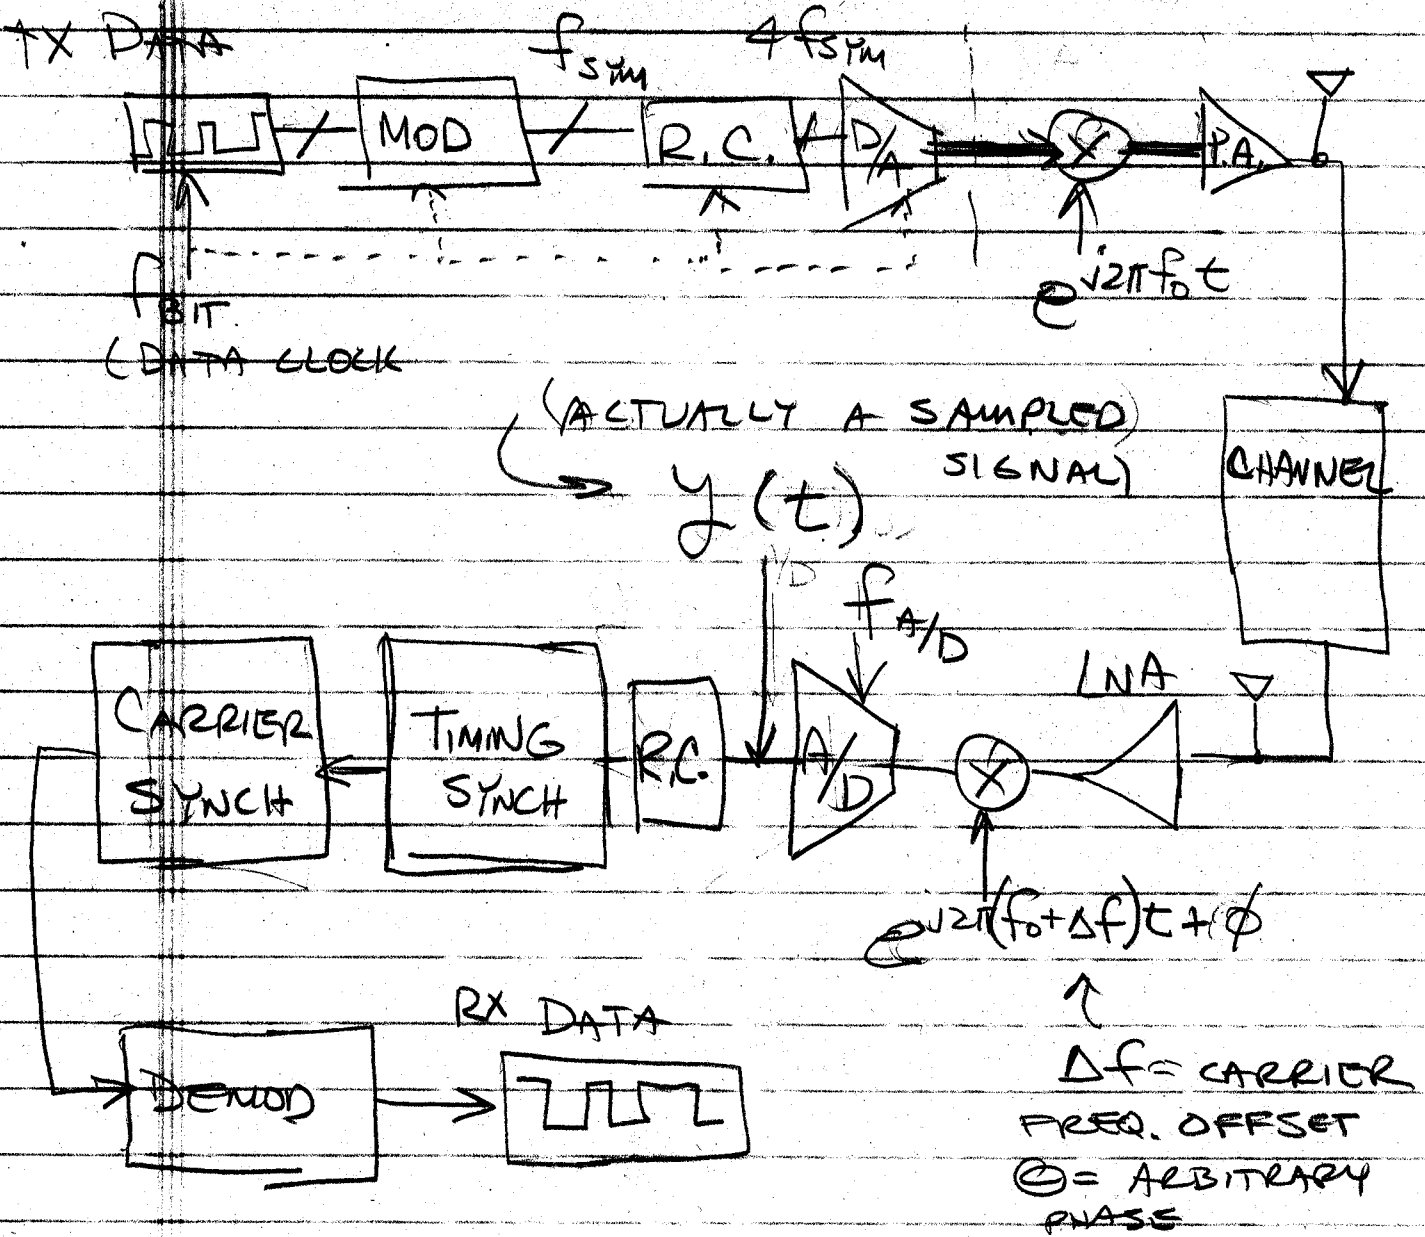 TX DATA
f_SYM
4 f_SYM
MOD
R.C.
D/A
X
P.A.
e^j2πf₀t
f_BIT
(DATA CLOCK
(ACTUALLY A SAMPLED
SIGNAL)
y(t)
CHANNEL
f_A/D
LNA
CARRIER
SYNCH
TIMING
SYNCH
R.C.
A/D
X
e^j2π(f₀+Δf)t+φ
RX DATA
DEMOD
Δf = CARRIER
FREQ. OFFSET
Θ = ARBITRARY
PHASE